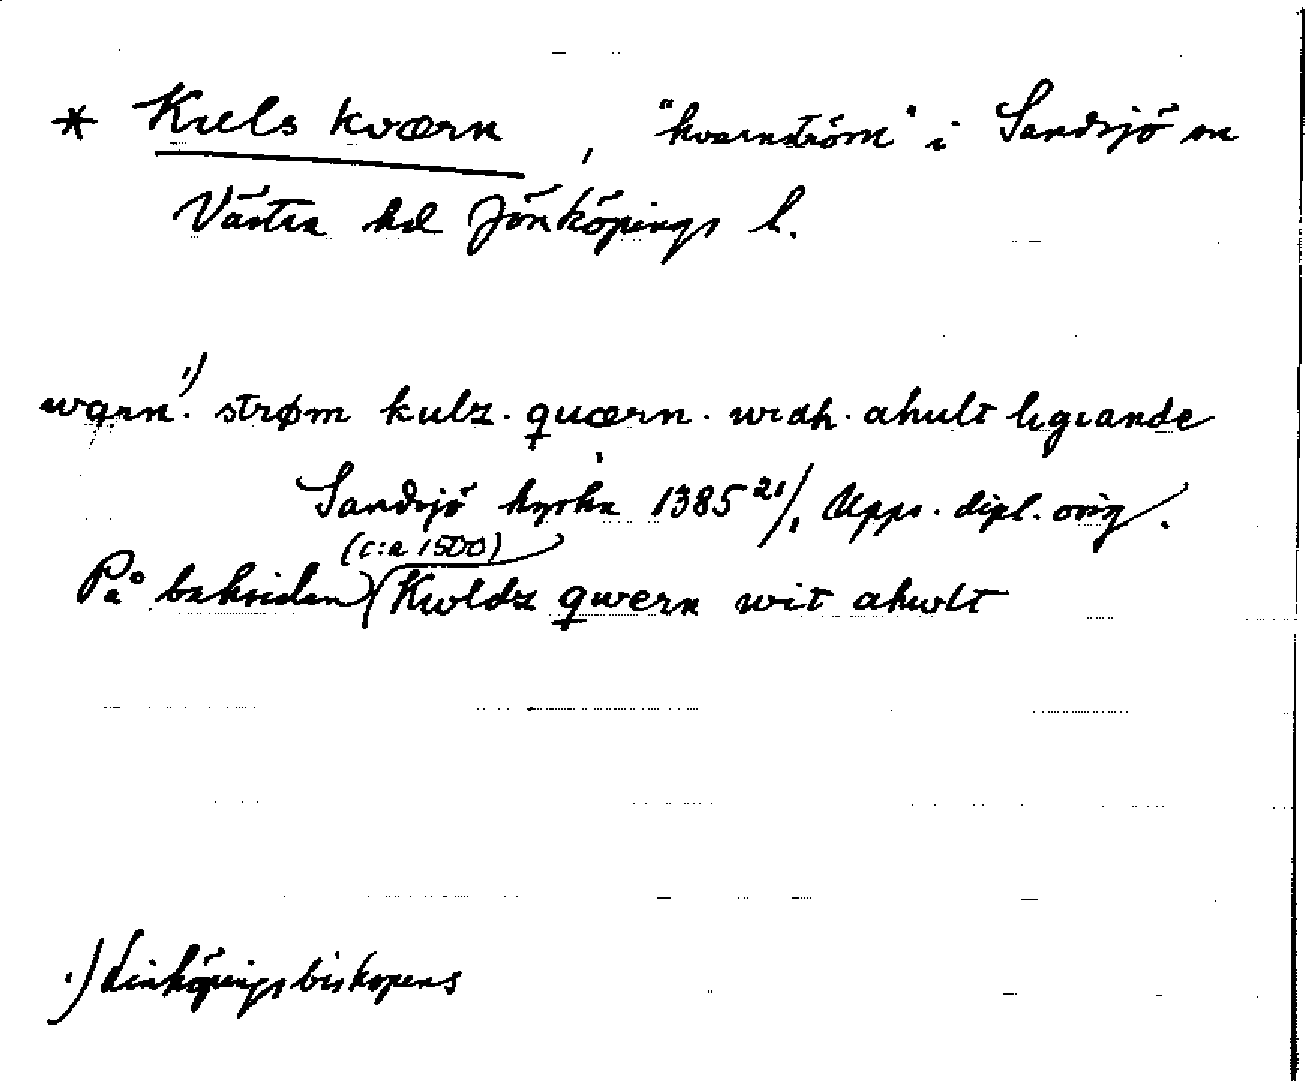 * Kuls kværn, "kvarnström" i Sandsjö sn
Västra hd Jönköpings l.
warn¹⁾. strøm kulz. quærn. widh. ahult ligiande
Sandsjö kyrka 1385 21/1 Upps. dipl. orig.
(c:a 1500)
På baksidan Kwldz qwern wit ahwlt
1) Linköpingsbiskopens